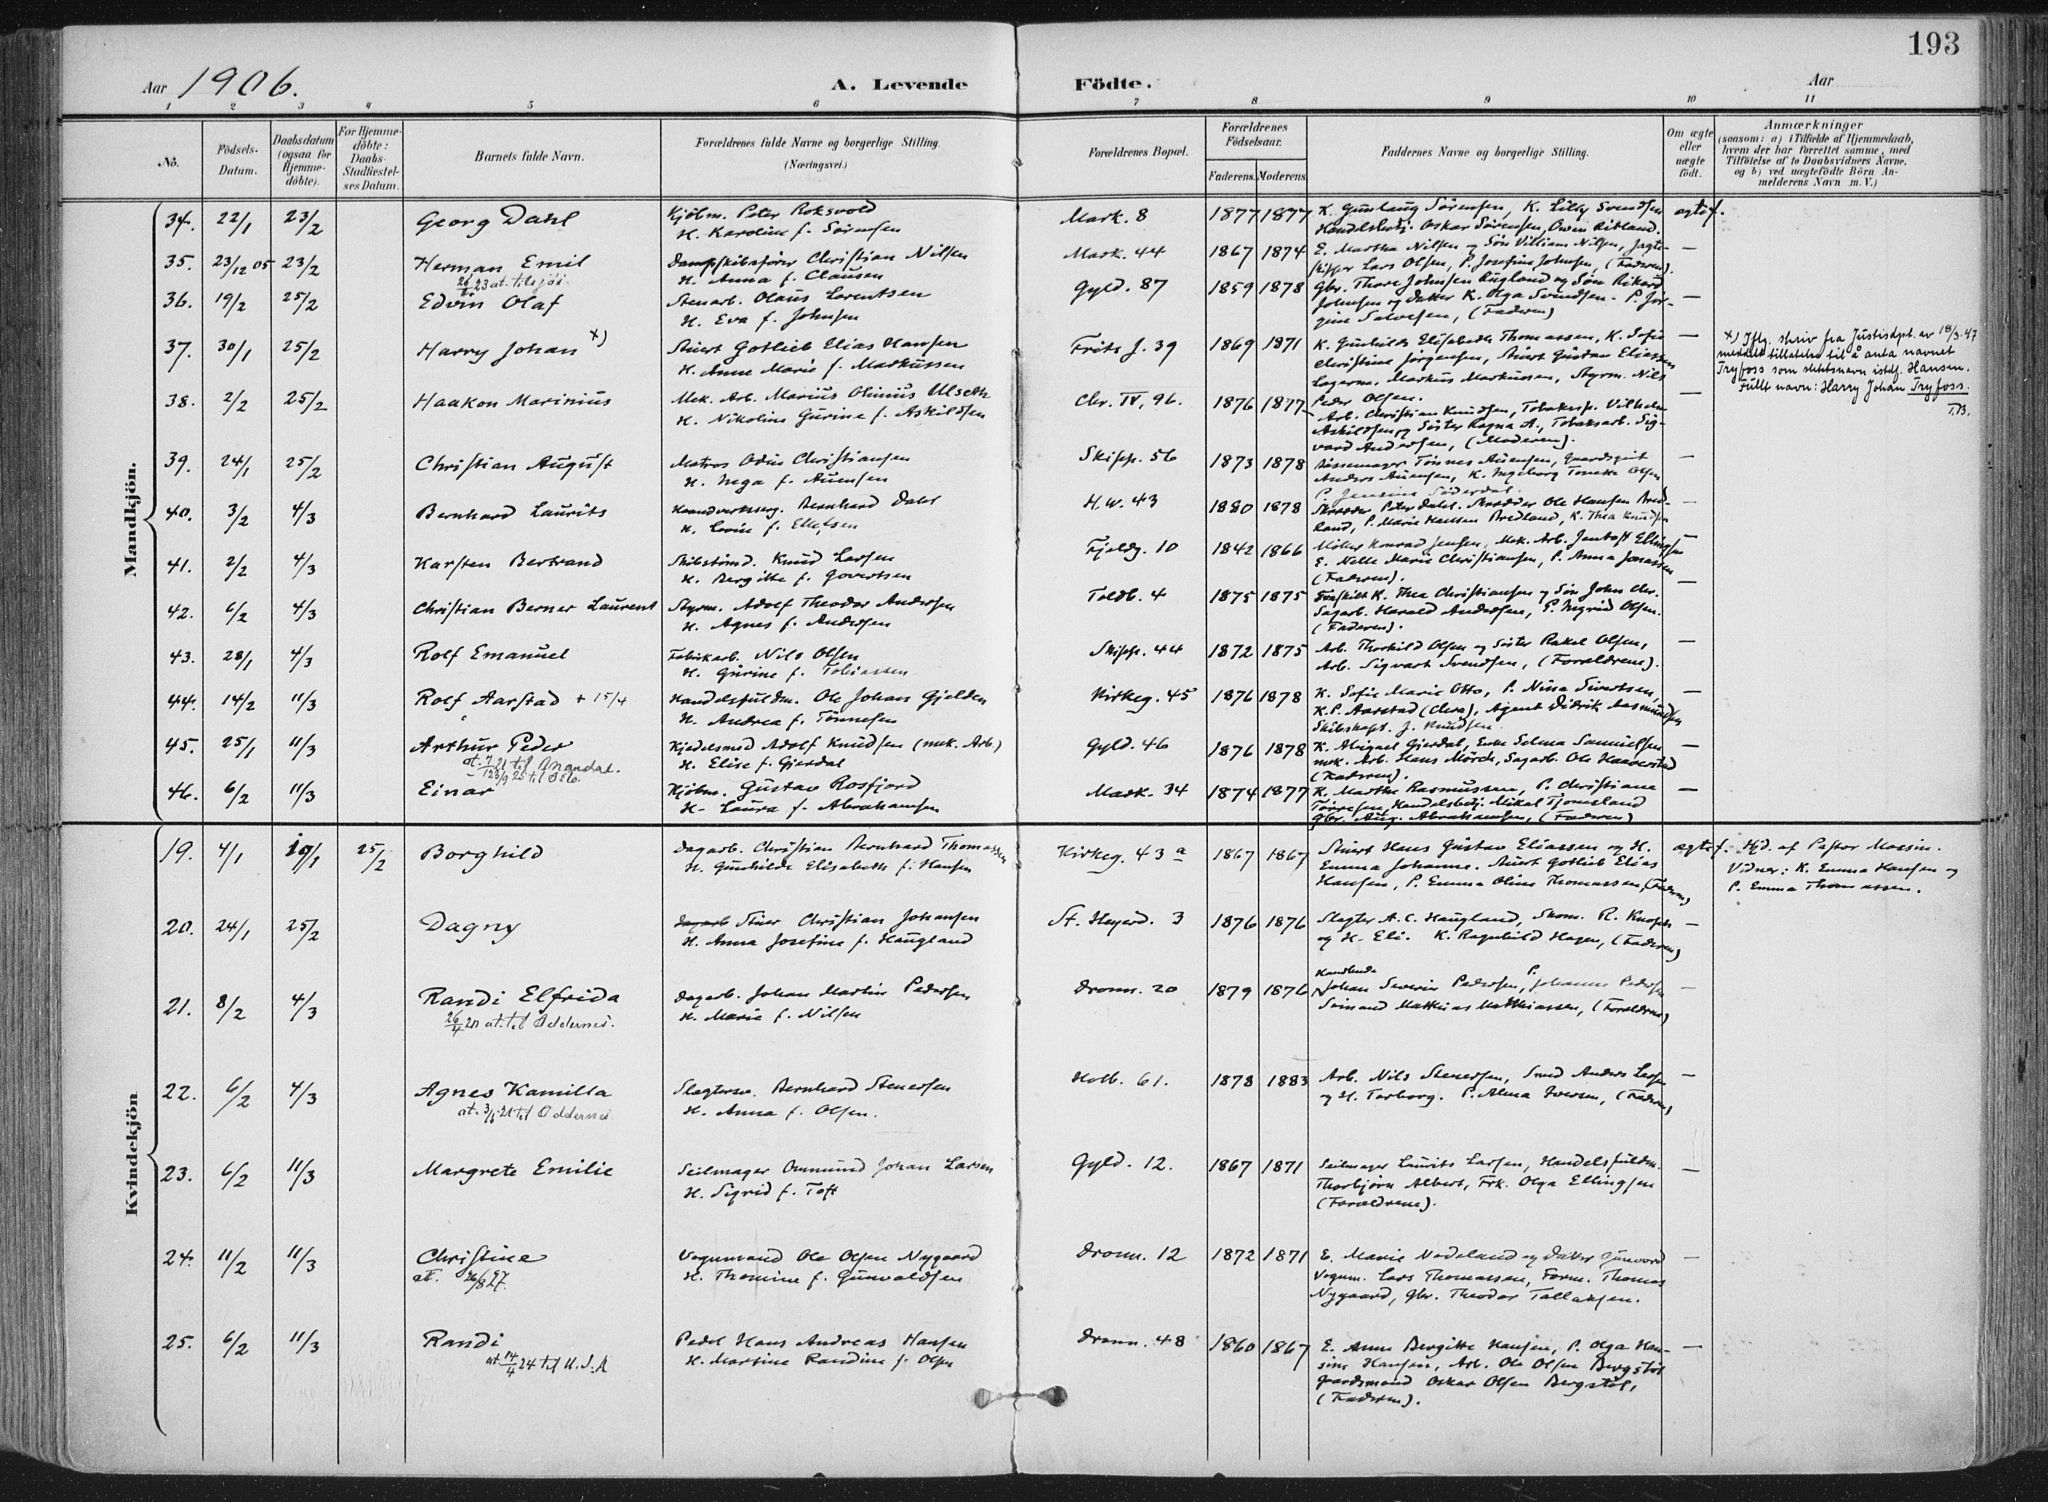 193
Aar 1906.
A. Levende Födte.
Aar
1 2 3 4 5 6 7 8 9 10 11
No.
Födsels-Datum.
Daabsdatum (ogsaa for Hjemme-döbte).
For Hjemme-döbte: Daabs-Stadfæstel-ses Datum.
Barnets fulde Navn.
Forældrenes fulde Navne og borgerlige Stilling. (Næringsvei.)
Forældrenes Bopæl.
Forældrenes Födselsaar.
Faderens. Moderens.
Faddernes Navne og borgerlige Stilling.
Om ægte eller uægte födt.
Anmærkninger
(saasom: a) i Tilfælde af Hjemmedaab, hvem der har forrettet samme, med Tilföielse af to Daabsvidners Navne, og b) ved uægtefödte Börn An-melderens Navn m. V.)
Mandkjön.
34. 22/1 23/2 Georg Dahl
Kjøbm. Peter Roksvold
H. Karoline f. Sørensen
Mark. 8 1877 1877
K. Gunlaug Sørensen, K. Lilly Svendsen
Handelsbetj. Oskar Sørensen, Owin Ribland.
ægtef.
35. 23/12 05 23/2 Herman Emil
26/ 23 at. til
Dampskibsfører Christian Nilsen
H. Anna f. Clausen
Mark. 44 1867 1874
E. Martha Nilsen og Søn William Nilsen, Jagte-
skipper Lars Olsen, P. Josefine Johnsen, (Faderen).
—
36. 19/2 25/2 Edvin Olaf
Stenarb. Olaus Lorentsen
H. Eva f. Johnsen
Gyld. 87 1859 1878
Gbr. Thore Johnsen Augland og Søn Rikard
Johnsen og Datter K. Olga Svendsen. P. Jør-
gine Salvesen, (Faderen)
—
37. 30/1 25/2 Harry Johan x)
Stuert Gotlieb Elias Hansen
H. Anne Marie f. Markussen
Frits J. 39 1869 1871
K. Gunhilde Elisabeth Thomassen, K. Sofie
Christine Jørgensen, Stuert Gustav Eliassen
Lagerm. Markus Markussen, Styrm. Nils
Peder Olsen.
—
x) Iflg. skriv fra Justisdpt. av 18/3.47
meddelt tillatelse til å anta navnet
Tryfoss som slektsnavn istdf. Hansen.
Fullt navn: Harry Johan Tryfoss.
T.B.
38. 2/2 25/2 Haakon Marinius
Mek. Arb. Marius Olinius Ulseth
H. Nikoline Gurine f. Askildsen
Chr. IV, 96. 1876 1877
Arb. Christian Knudsen, Tobaksp. Vilhelm
Askildsen og Søster Ragna A., Tobaksarb. Sig-
vard Andersen, (Moderen).
—
39. 24/1 25/2 Christian August
Matros Odin Christiansen
H. Inga f. Auensen
Skipp. 56 1873 1878
Tønnes Auensen, Gaardsgut
Anders Auensen, K. Ingeborg Tomette Olsen
P. Jensine Söderdal.
—
40. 3/2 4/3 Bernhard Laurits
Haandverkssvg. Bernhard Dahl
H. Lovise f. Ellefsen
H.W. 43 1880 1878
Skrædder Peter Dahl. Skrædder Ole Hansen Bred-
land, P. Marie Hansen Bredland, K. Thea Knudsen
—
41. 2/2 4/3 Karsten Bertrand
Skibstømd. Knud Larsen
H. Bergitte f. Govertsen
Fjeldg. 10 1842 1866
Møller Konrad Jensen, Mek. Arb. Jentoft Ellingsen
E. Nelle Marie Christiansen, P. Anna Jonassen
(Faderen).
—
42. 6/2 4/3 Christian Berner Laurent
Styrm. Adolf Theodor Andersen
H. Agnes f. Andersen
Toldb. 4 1875 1875
Fraskilt K. Thea Christiansen og Søn John Chr.
Sagarb. Harald Andersen, P. Ingrid Olsen.
(Faderen).
—
43. 28/1 4/3 Rolf Emanuel
Fabrikarb. Nils Olsen
H. Gurine f. Tobiassen
Skipp. 44 1872 1875
Arb. Thorkild Olsen og Søster Rakel Olsen,
Arb. Sigvart Svendsen, (Forældrene).
—
44. 14/2 11/3 Rolf Aarstad + 15/4
Handelsfuldm. Ole Johan Gjelden
H. Andrea f. Tønnesen
Kirkeg. 45 1876 1878
K. Sofie Marie Otto, P. Nina Sivertsen
K.P. Aarstad (Chra), Agent Didrik Aasmundsen
Skibskapt. J. Knudsen
—
45. 25/1 11/3 Arthur Peder
at. 7/ 21 til Mandal.
23/9 25 til Oslo.
Kjedelsmed Adolf Knudsen (mek. Arb.)
H. Elise f. Gjerdal
Gyld. 46 1876 1878
K. Abigael Gjerdal, Enke Selma Samuelsen
mek. Arb. Hans Mörch, Sagarb. Ole Haaverstad
(Faderen).
—
46. 6/2 11/3 Einar
Kjøbm. Gustav Rosfjord
H. Laura f. Abrahamsen
Mark. 34 1874 1877
K. Marthe Rasmussen, P. Christiane
Tønnesen, Handelsbetj. Mikal Tjomsland
Gbr. Aug. Abrahamsen, (Faderen)
—
Kvindekjön
19. 4/1 19/1 25/2 Borghild
Dagarb. Christian Bernhard Thomassen
H. Gunhilde Elisabeth f. Hansen
Kirkeg. 43 a 1867 1867
Stuert Hans Gustav Eliassen og H.
Emma Johanne. Stuert Gotlieb Elias
Hansen, P. Emma Oline Thomassen, (Faderen)
ægtef.
Hjd. af Pastor Mossin.
Vidner: K. Emma Hansen og
P. Emma Thomassen.
20. 24/1 25/2 Dagny
Dagarb. Stuer Christian Johansen
H. Anna Josefine f. Haugland
St. Heyerd. 3 1876 1876
Slagter A.C. Haugland, Skom. R. Knoph
og H. Eli. K. Ragnhild Hagen, (Faderen)
—
21. 8/2 4/3 Randi Elfrida
26/4 20 at. til Oddernes.
Dagarb. Johan Martin Pedersen
H. Marie f. Nilsen
Dronn. 20 1879 1876
Handlende P.
Johan Severin Pedersen, Johanne Pedersen
Sømand Mathias Matthiassen, (Forældrene)
—
22. 6/2 4/3 Agnes Kamilla
at. 3/5 21 til Oddernes.
Slagtersv. Bernhard Stenersen
H. Anna f. Olsen.
Holb. 61. 1878 1883
Arb. Nils Stenersen, Smed Anders Larsen
og H. Torborg. P. Alma Iversen, (Faderen)
—
23. 6/2 11/3 Margrete Emilie
Seilmager Ommund Johan Larsen
H. Sigrid f. Toft
Gyld. 12. 1867 1871
Seilmager Laurits Larsen, Handelsfuldm.
Thorbjørn Albert, Frk. Olga Ellingsen
(Forældrene).
—
24. 11/2 11/3 Christine
at. 26/8 27.
Vognmand Ole Olsen Nygaard
H. Thomine f. Gunvaldsen
Dronn. 12 1872 1871
E. Marie Nodeland og Datter Gunvord
Vognm. Lars Thomassen, Form. Thomas
Nygaard, Gbr. Theodor Tallaksen.
—
25. 6/2 11/3 Randi
at. 14/4 24 til U.S.A
Pedel Hans Andreas Hansen
H. Martine Randine f. Olsen
Dronn. 48 1860 1867
E. Anne Bergitte Hansen, P. Olga Han-
sine Hansen, Arb. Ole Olsen Bergstøl
Gaardmand Oskar Olsen Bergstøl,
(Faderen).
—